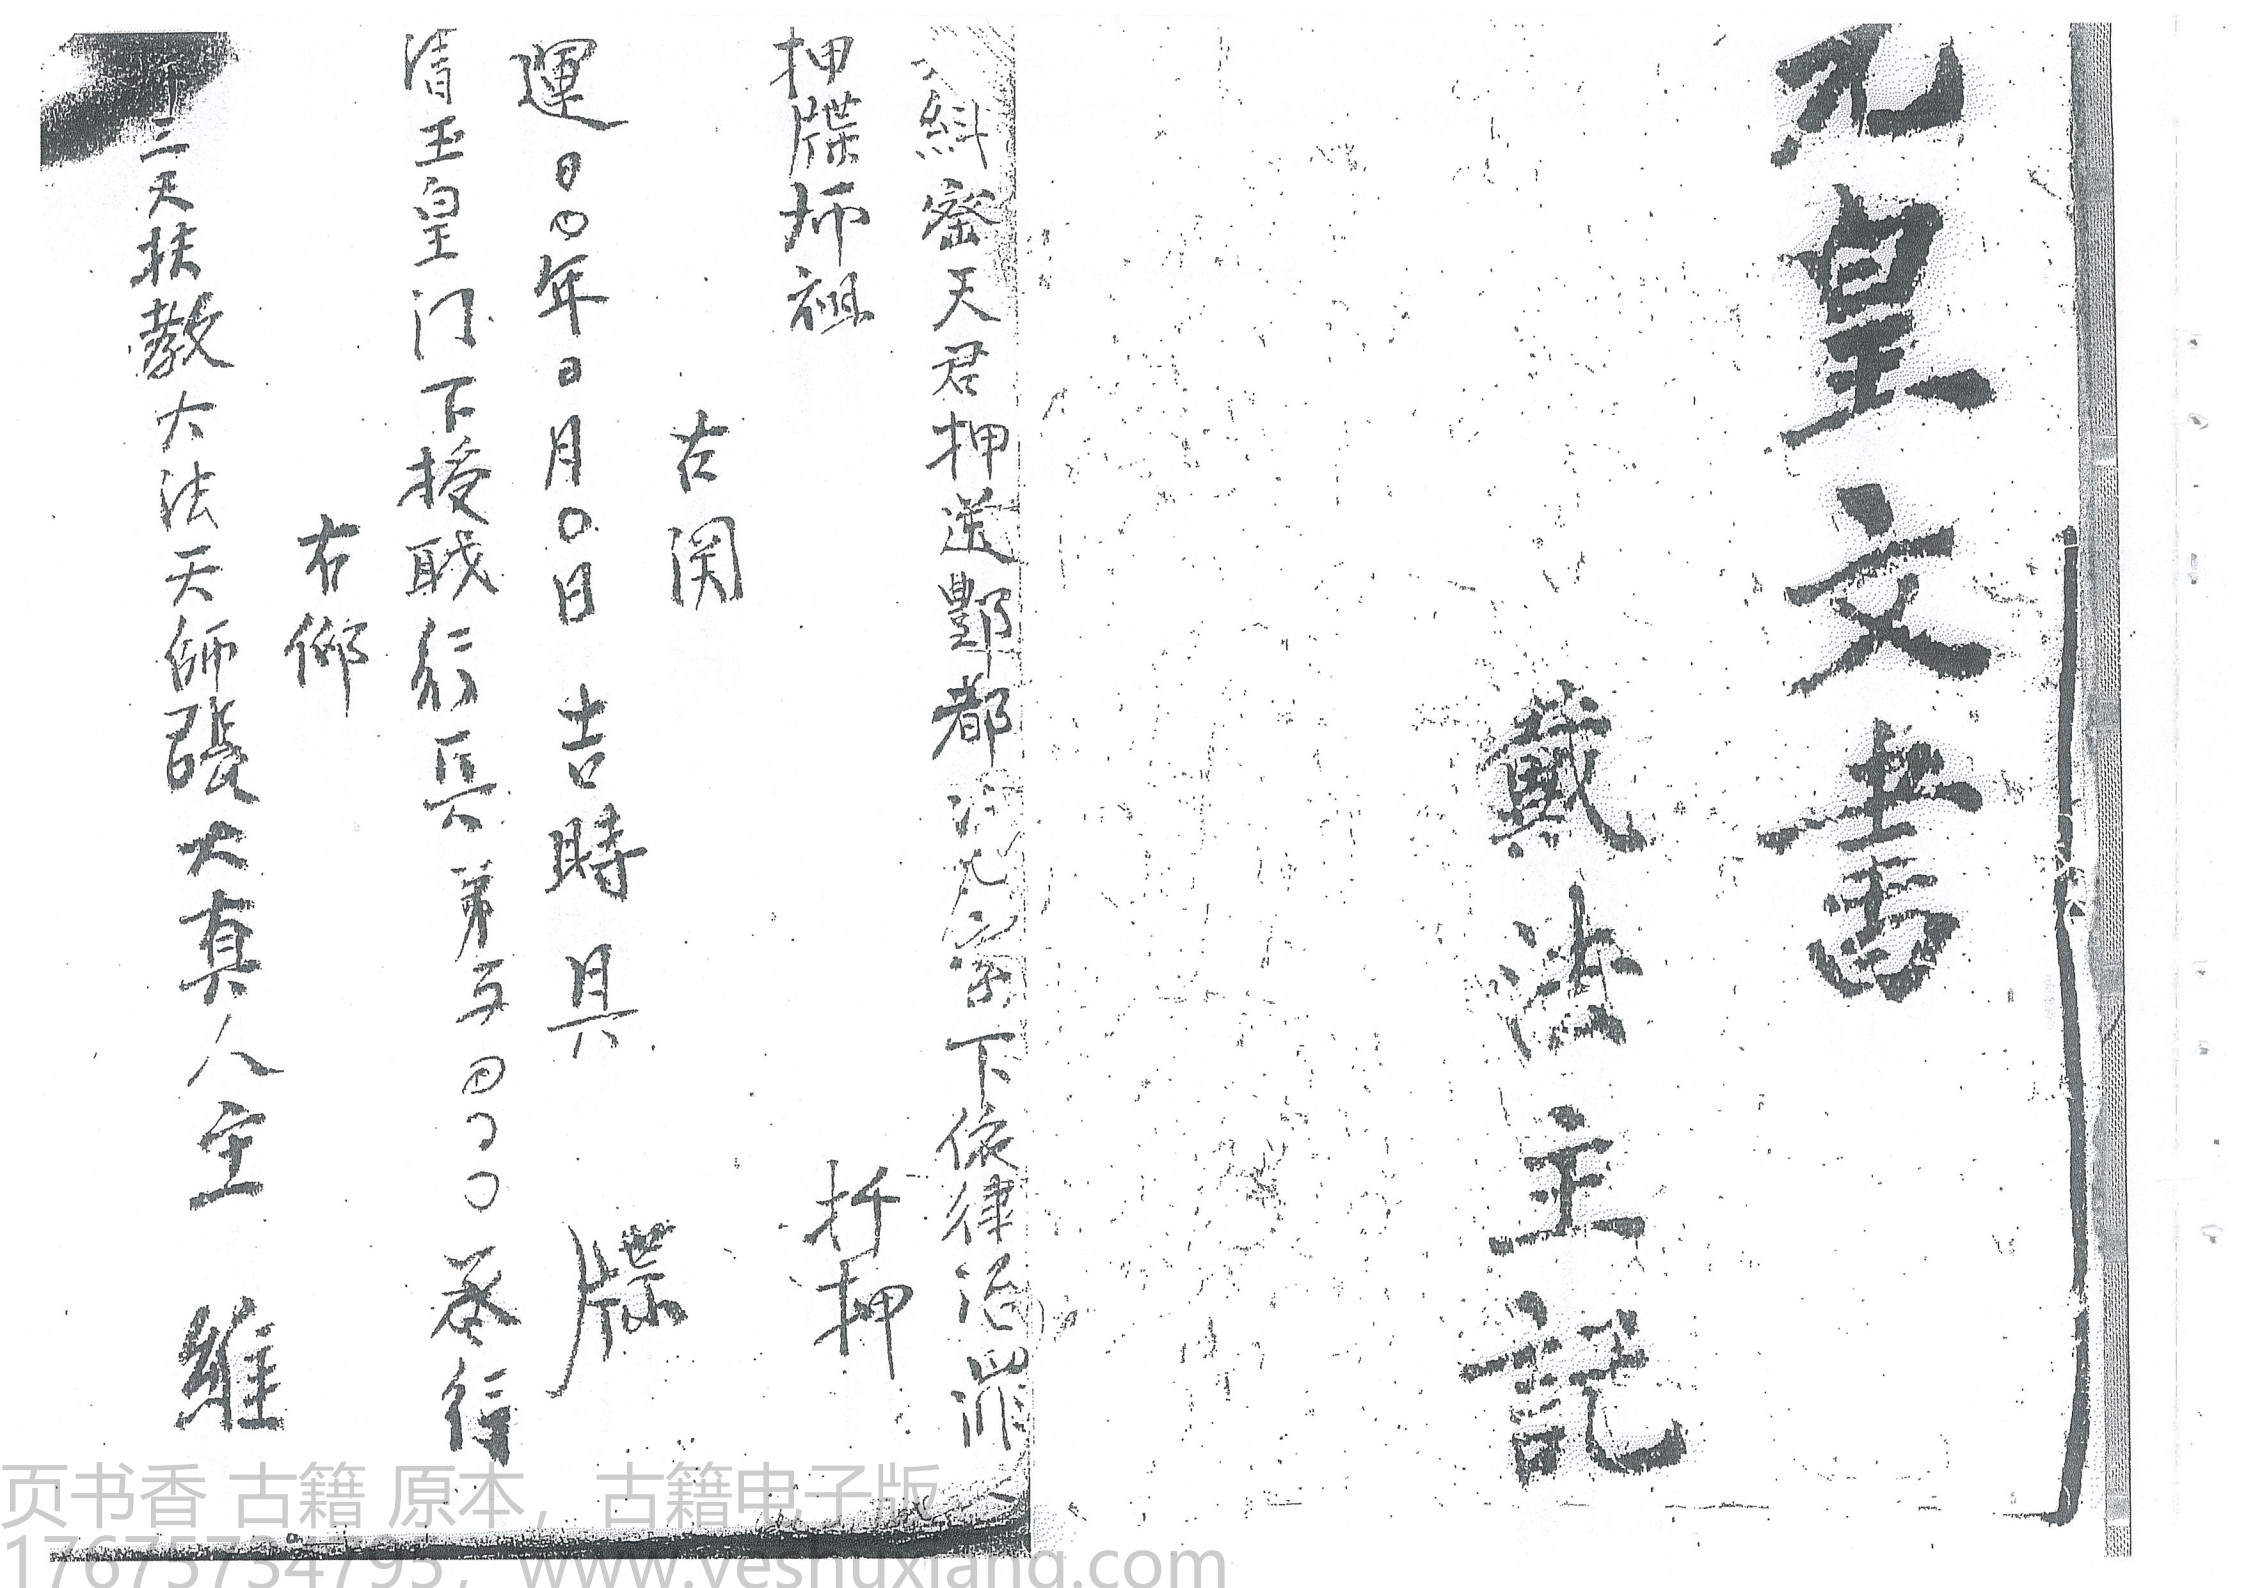 元皇文書
戴法主記
糾察天君押送酆都九泉下依律治罪
押牒師祖 扦押
右関
運 年 月〇日吉時具 牒
清玉皇门下授职行兵弟子 叅行
右仰
三天扶教大法天師張大真人主 維
页书香 古籍 原本，古籍电子版
17675734793，www.yeshuxiang.com